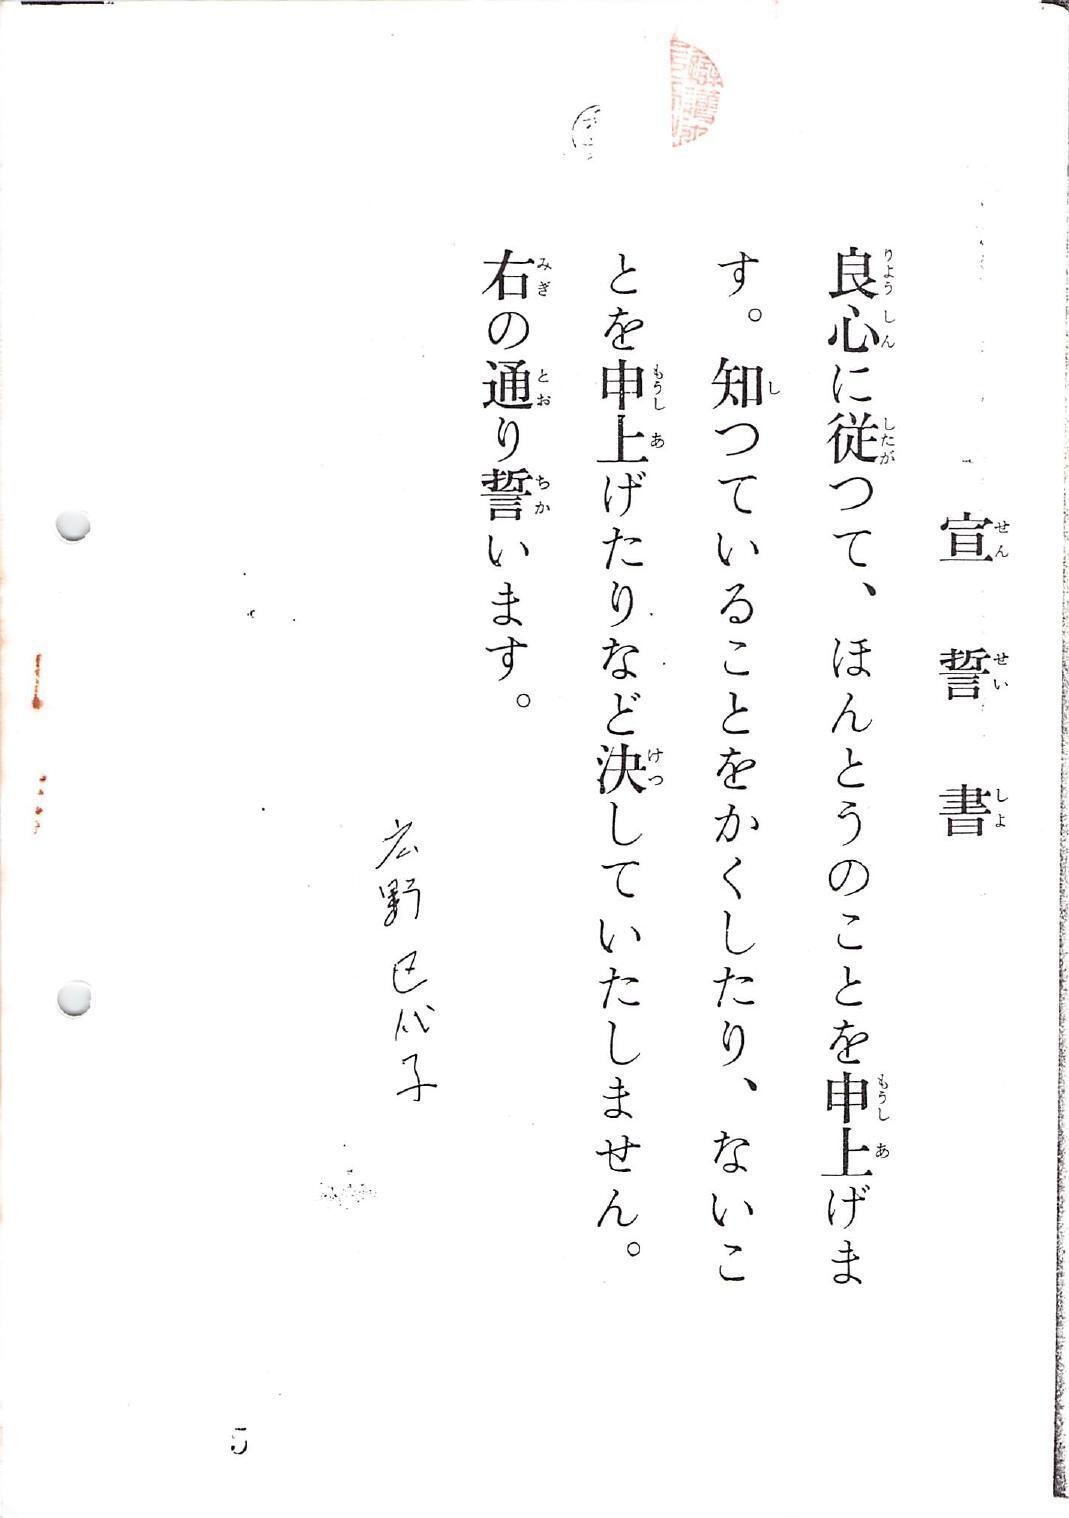 宣誓書
良心に従つて、ほんとうのことを申上げま
す。知つていることをかくしたり、ないこ
とを申上げたりなど決していたしません。
右の通り誓います。
広野巴代子
5